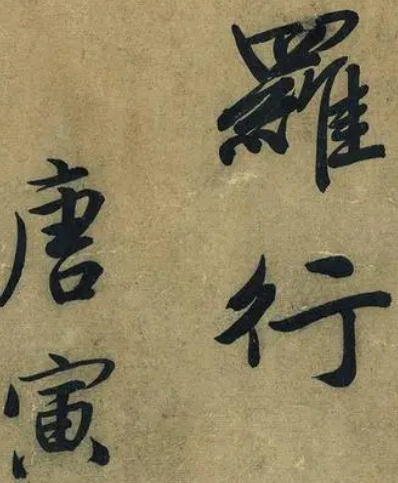 羅行
唐寅